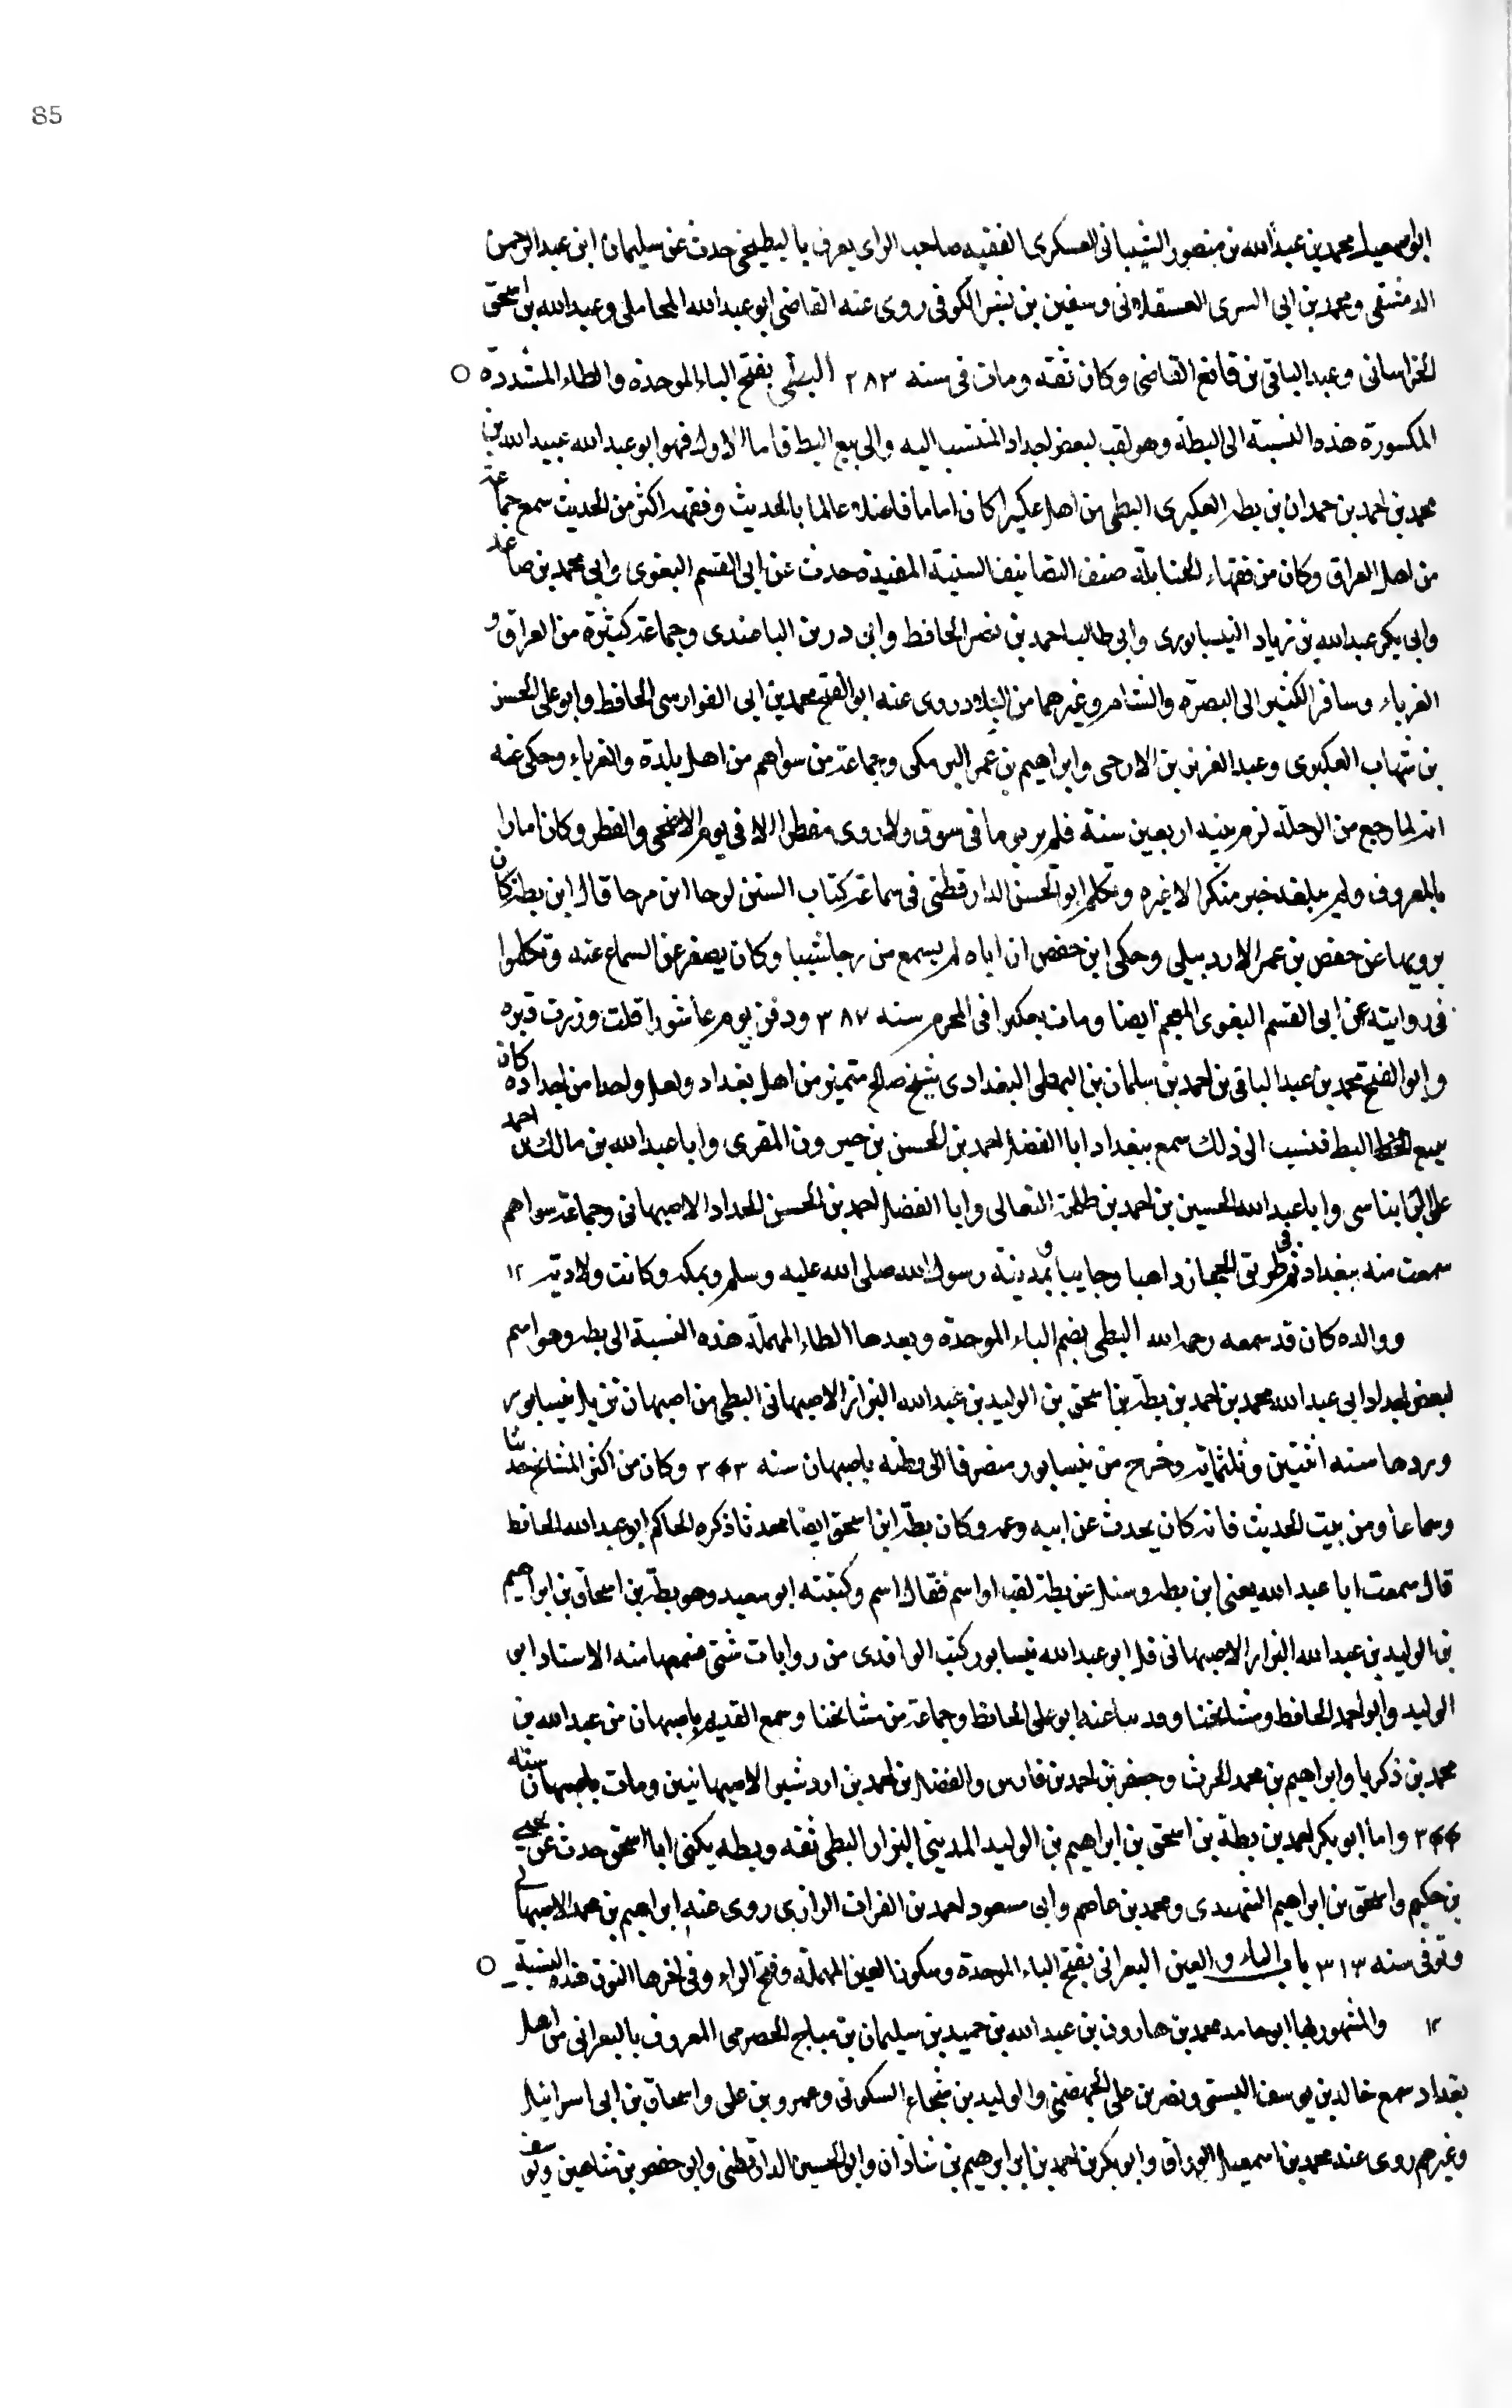 85
ابو اسمعيل محمد بن عبد الله بن منصور الشيبانى العسكرى الفقيه صاحب الراى يعرف بالبطيخى حدث عن سليمان ابن عبد الرحمن
الدمشقى ومحمد بن ابى السرى العسقلانى وسفين بن بشر الكوفى روى عنه القاضى ابو عبد الله المحاملى وعبد الله بن اسحق
الخراسانى وعبد الباقى بن قانع القاضى وكان ثقه ومات فى سنه ٢٨٣ البطى بفتح الباء الموحده والطاء المشدده ○
المكسورة هذه النسبة الى البطة وهو لقب لبعض اجداد المنتسب اليه والى بيع البط فاما الاول فهو ابو عبد الله عبيد الله بن
محمد بن احمد بن حمدان بن بطه العكبرى البطى من اهل عكبرا كان اماما فاضلا عالما بالحديث وفقهه اكثر من الحديث سمع جماعة
من اهل العراق وكان من فقهاء الحنابلة صنف التصانيف السنية المفيدة حدث عن ابى القسم البغوى وابى محمد بن صاعد
وابى بكر عبد الله بن زياد النيسابورى وابى طالب احمد بن نصر الحافظ وابن درين الباغندى وجماعة كثيرة من العراق و
الغرباء وسافر الكثير الى البصرة والشام وغيرهما من البلاد روى عنه ابو الفتح محمد بن ابى الفوارس الحافظ وابو على الحسن
بن شهاب العكبرى وعبد العزيز بن الارجى وابراهيم بن عمر البرمكى وجماعة من سواهم من اهل بلده والغرباء وحكى عنه
انه لما رجع من الرحلة لزم بيته اربعين سنة فلم ير يوما فى سوق ولا روى مفطرا الا فى يوم الاضحى والفطر وكان امارا
بالمعروف ولم يبلغه خبر منكر الا غيره وتكلم ابو الحسن الدارقطنى فى سماعه كتاب السنن لرجا ابن مرجا قال ابن بطة كان
يرويها عن حفص بن عمر الاردبيلى وحكى ابن حفص ان اباه لم يسمع من رجا شيا وكان يصغر عن السماع عنه وتكلموا
فى روايته عن ابى القسم البغوى المعجم ايضا ومات بعكبرا فى المحرم سنه ٣٨٧ ودفن يوم عاشورا قلت وزرت قبره
وابو الفتح محمد بن عبد الباقى بن احمد بن سلمان بن البطى البغدادى شيخ صالح متميز من اهل بغداد ولعل واحدا من اجداده كان
يبيع البط فنسب الى ذلك سمع ببغداد ابا الفضل احمد بن الحسن بن خيرون المقرى وابا عبد الله بن مالك بن احمد
على البانياسى وابا عبد الله الحسين بن احمد بن طلحة النعالى وابا الفضل احمد بن الحسن الحداد الاصبهانى وجماعة سواهم
سمعت منه ببغداد ثم فى طريق الحجاز ذاهبا وجايبا وبمدينة رسول الله صلى الله عليه وسلم وبمكه وكانت ولادته ١٢
ووالده كان قد سمعه رحمه الله البطى بضم الباء الموحدة وبعدها الطاء المهملة هذه النسبة الى بطه وهو اسم
لبعض اجداد ابى عبد الله محمد بن احمد بن بطة بن اسحق بن الوليد بن عبد الله البزاز الاصبهانى البطى من اصبهان نزيل نيسابور
وردها سنه اثنتين وثلثمائه وخرج من نيسابور منصرفا الى وطنه باصبهان سنه ٣٤٣ وكان من اكثر المشايخ حديثا
وسماعا ومن بيت الحديث فانه كان يحدث عن ابيه وعمه وكان بطة ابن اسحق ايضا محدثا ذكره الحاكم ابو عبد الله الحافظ
قال سمعت ابا عبد الله يعنى ابن بطه وسئل عن بطة لقب او اسم فقال اسم وكنيته ابو سعيد وهو بطة بن اسحاق بن ابراهيم
بن الوليد بن عبد الله البزار الاصبهانى قال ابو عبد الله نيسابور كتب الواقدى من روايات شتى فسمعها منه الاستاد ابو
الوليد وابو احمد الحافظ ومشايخنا وقد سا عنه ابو على الحافظ وجماعة من مشايخنا وسمع القديم باصبهان من عبد الله بن
محمد بن زكريا وابراهيم بن محمد الحرث وجعفر بن احمد بن فارس والفضل بن احمد بن اردشير الاصبهانيين ومات باصبهان سنه
٣٤٤ واما ابو بكر احمد بن بطة بن اسحق بن ابراهيم بن الوليد المدينى البزار البطى ثقه وبطه يكنى ابا اسحق حدث عن يحيى
بن حكيم واسحق بن ابراهيم الشهيدى ومحمد بن عاصم وابى مسعود احمد بن الفرات الرازى روى عنه ابراهيم بن محمد الاصبهانى
وتوفى سنه ٣١٣ باب الباء والعين البعرانى بفتح الباء الموحدة وسكون العين المهملة وفتح الراء وفى اخرها النون هذه النسبة ○
١٢ والمشهور بها ابو حامد محمد بن هارون بن عبد الله بن حميد بن سليمان بن مياح الحضرمى المعروف بالبعرانى من اهل
بغداد سمع خالد بن يوسف البستى ونصر بن على الجهضمى والوليد بن شجاع السكونى وعمرو بن على واسحاق بن ابى اسرائيل
وغيرهم روى عنه محمد بن اسمعيل الوراق وابو بكر بن احمد بن ابراهيم بن شاذان وابو الحسين الدارقطنى وابو حفص بن شاهين ويوسف